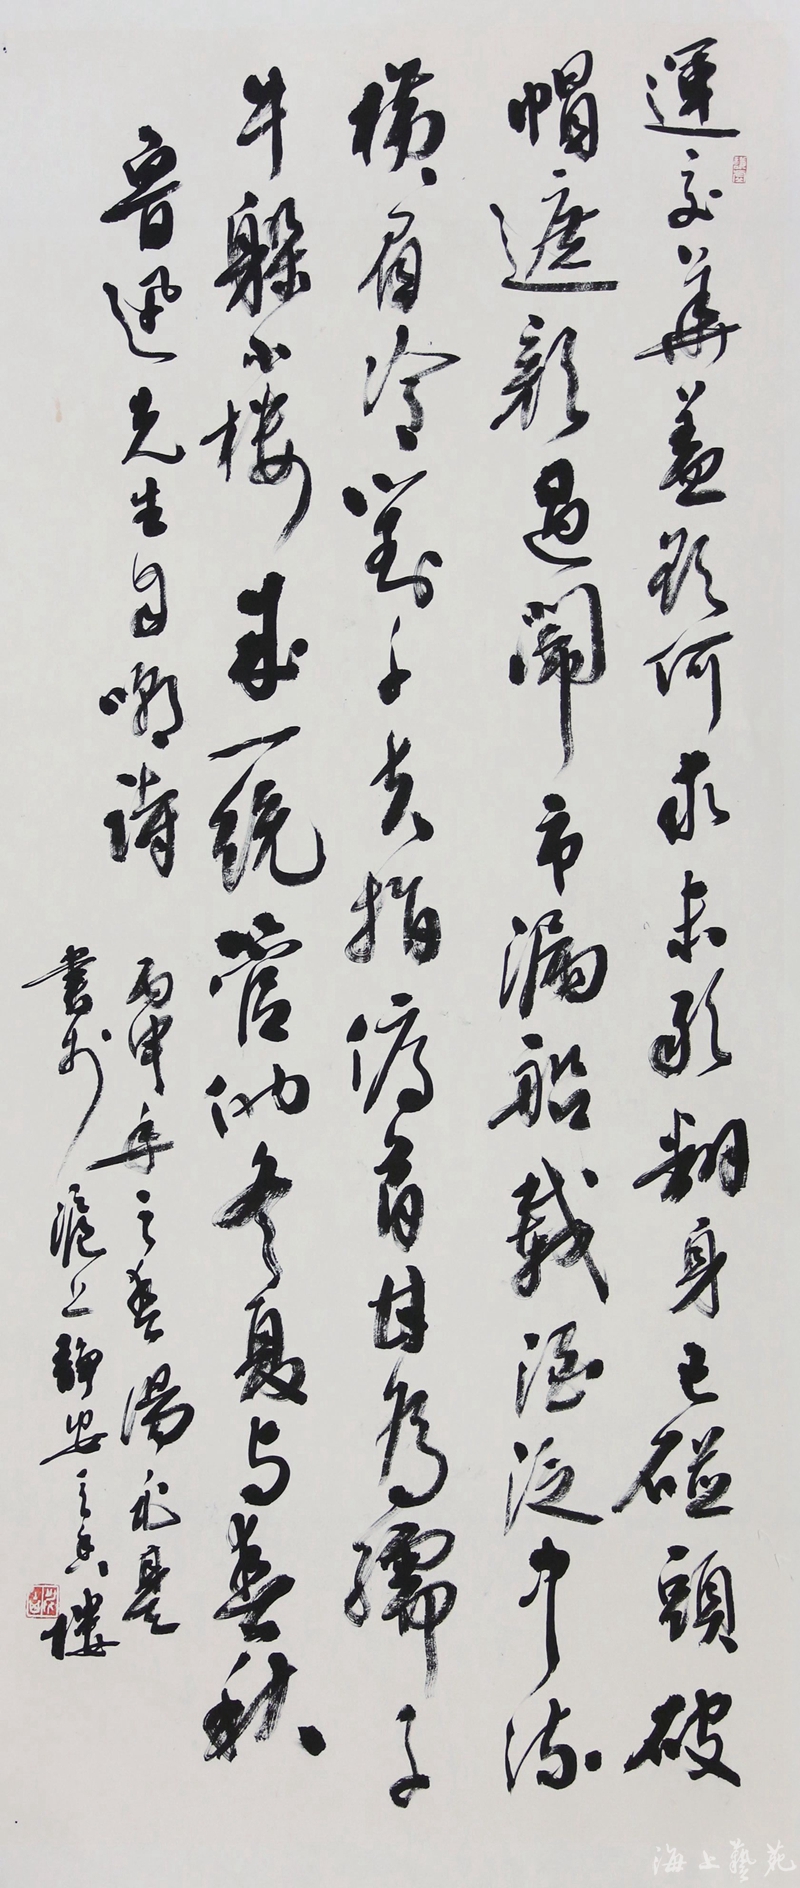 運交華蓋欲何求未敢翻身已碰頭破
帽遮顏過鬧市漏船載酒泛中流
橫眉冷對千夫指俯首甘為孺子
牛躲小樓成一統管他冬夏与春秋
魯迅先生自嘲詩
丙申年之春湯兆基
書於滬上靜安樓
海上藝苑